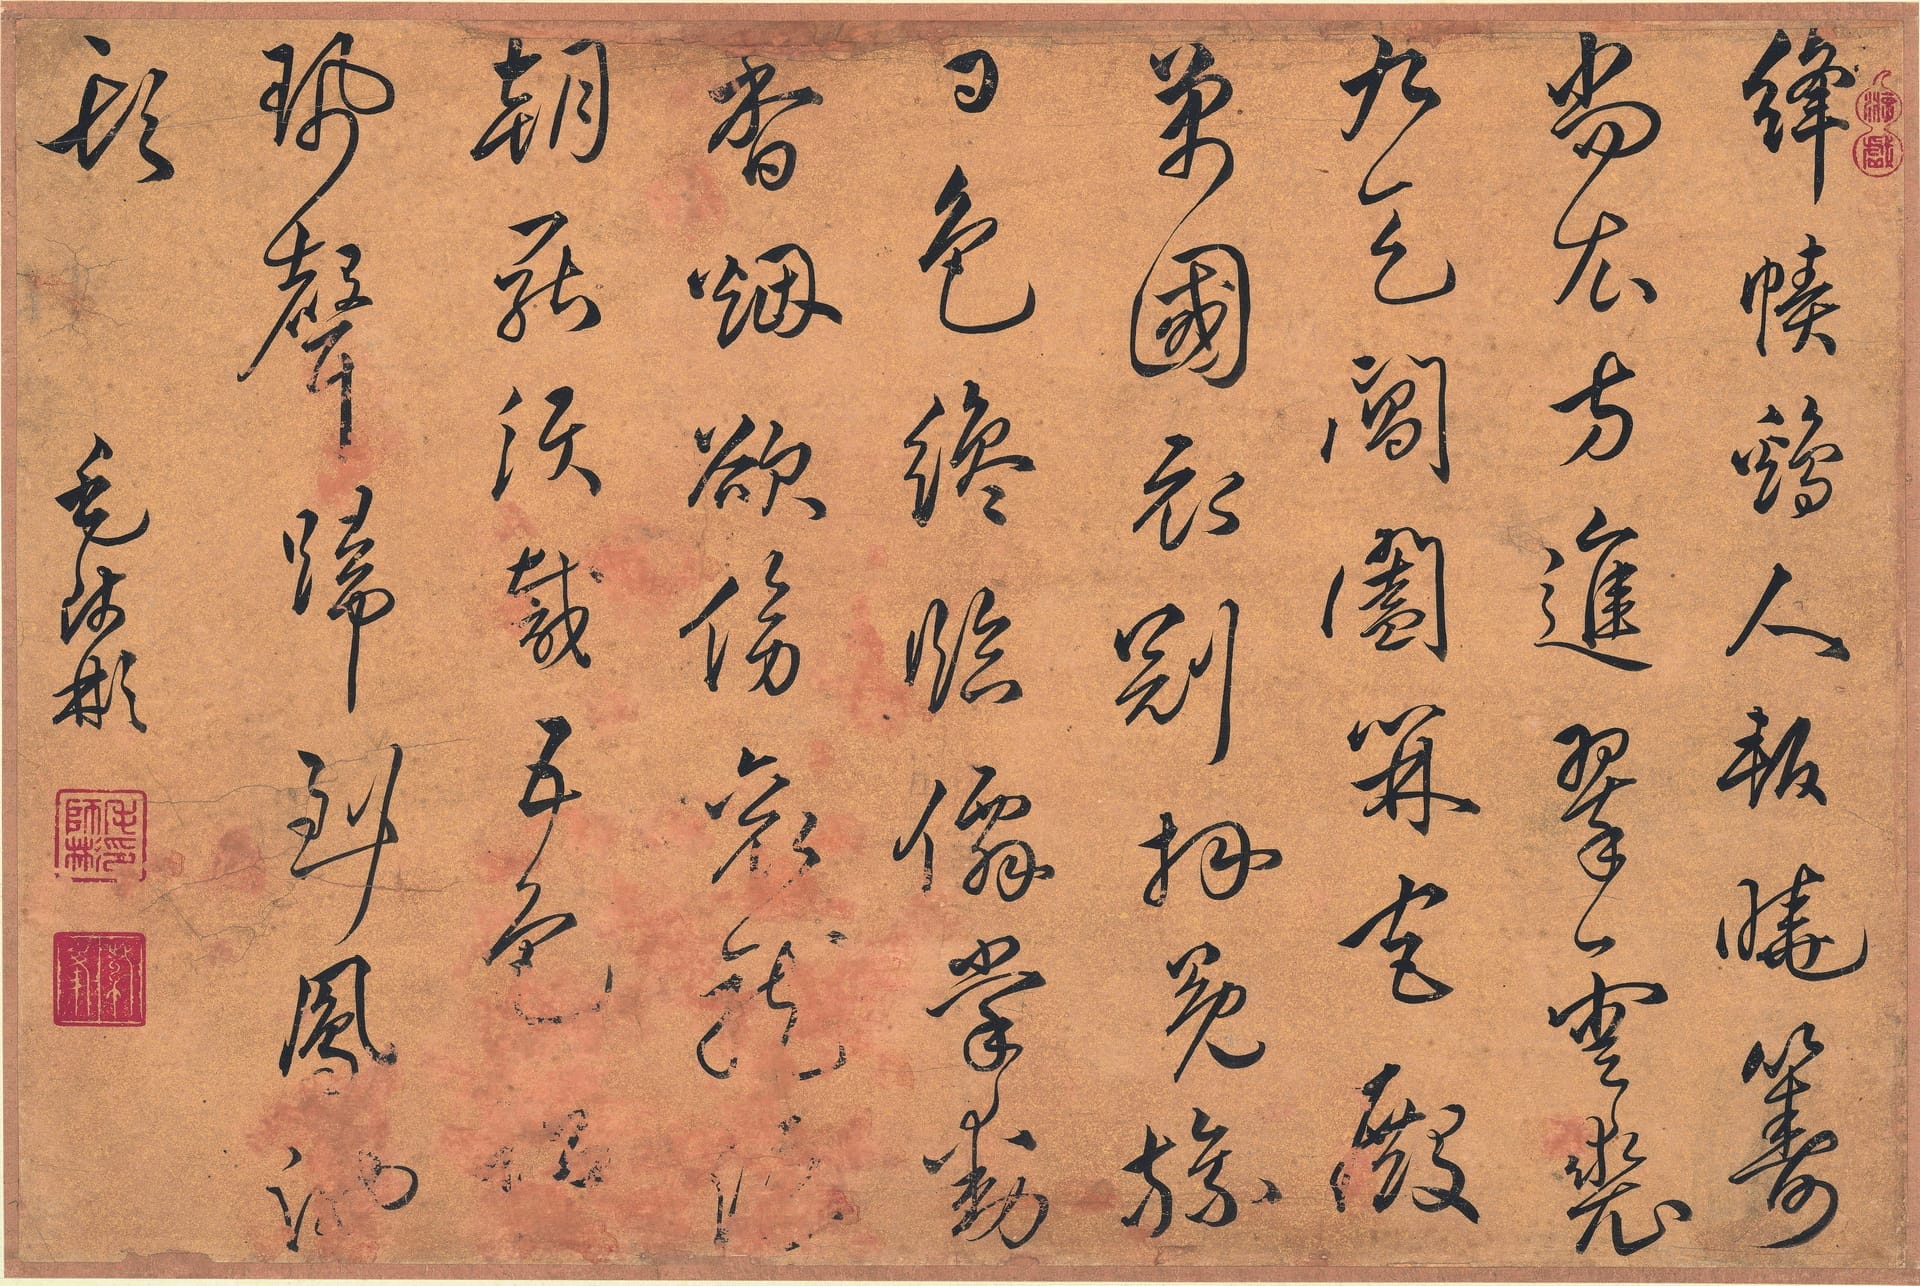 絳幘鷄人報曉籌
尚衣方進翠雲裘
九天閶闔開宮殿
萬國衣冠拜冕旒
日色纔臨僊掌動
香烟欲傍衮龍浮
朝罷須裁五色詔
珮聲歸到鳳池
頭
毛師彬
毛師彬印